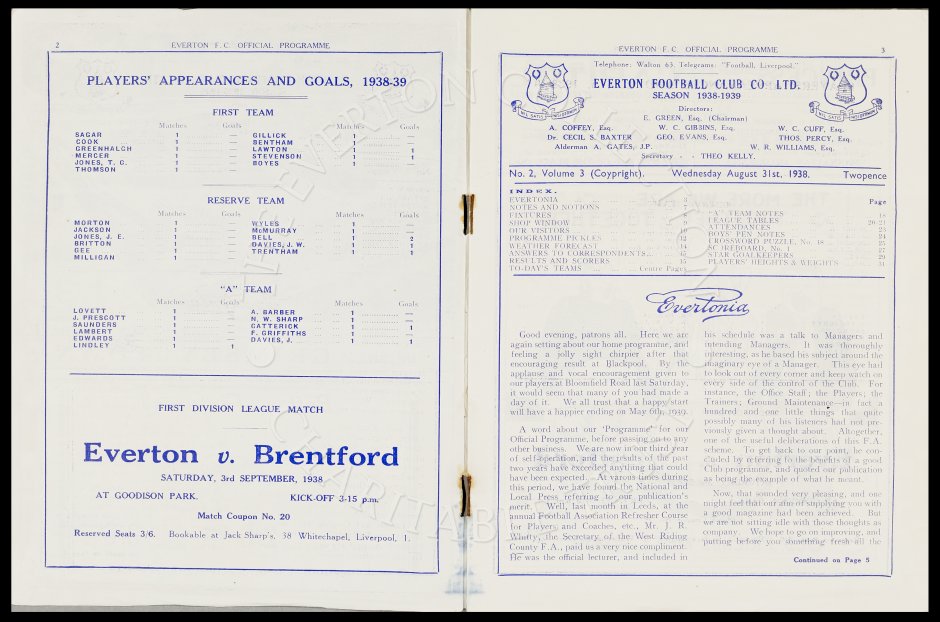 2 EVERTON F.C. OFFICIAL PROGRAMME
PLAYERS' APPEARANCES AND GOALS, 1938-39
FIRST TEAM
Matches Goals Matches Goals
SAGAR 1 — GILLICK 1 —
COOK 1 — BENTHAM 1 —
GREENHALGH 1 — LAWTON 1 1
MERCER 1 — STEVENSON 1 1
JONES, T. G. 1 — BOYES 1 —
THOMSON 1 —
RESERVE TEAM
Matches Goals Matches Goals
MORTON 1 — WYLES 1 —
JACKSON 1 — McMURRAY 1 —
JONES, J. E. 1 — BELL 1 2
BRITTON 1 — DAVIES, J. W. 1 1
GEE 1 — TRENTHAM 1 1
MILLIGAN 1 —
"A" TEAM
Matches Goals Matches Goals
LOVETT 1 — A. BARBER 1 —
J. PRESCOTT 1 — N. W. SHARP 1 —
SAUNDERS 1 — CATTERICK 1 1
LAMBERT 1 — F. GRIFFITHS 1
EDWARDS 1 — DAVIES, J. 1 1
LINDLEY 1 1
FIRST DIVISION LEAGUE MATCH
Everton v. Brentford
SATURDAY, 3rd SEPTEMBER, 1938
AT GOODISON PARK. KICK-OFF 3-15 p.m.
Match Coupon No. 20
Reserved Seats 3/6. Bookable at Jack Sharp's, 38 Whitechapel, Liverpool, 1.
EVERTON F.C. OFFICIAL PROGRAMME 3
Telephone: Walton 63. Telegrams: "Football, Liverpool."
EVERTON FOOTBALL CLUB CO. LTD.
SEASON 1938-1939
Directors:
E. GREEN, Esq. (Chairman)
A. COFFEY, Esq. W. C. GIBBINS, Esq. W. C. CUFF, Esq.
Dr. CECIL S. BAXTER GEO. EVANS, Esq. THOS. PERCY, Esq.
Alderman A. GATES, J.P. W. R. WILLIAMS, Esq.
Secretary - - THEO KELLY.
NIL SATIS NISI OPTIMUM
NIL SATIS NISI OPTIMUM
No. 2, Volume 3 (Copyright). Wednesday August 31st, 1938. Twopence
INDEX.
EVERTONIA
NOTES AND NOTIONS
FIXTURES
SHOP WINDOW
OUR VISITORS
PROGRAMME PICKLES
WEATHER FORECAST
ANSWERS TO CORRESPONDENTS
RESULTS AND SCORERS 15
TO-DAY'S TEAMS Centre Pages
Page
"A" TEAM NOTES 18
LEAGUE TABLES 20-21
ATTENDANCES 23
BOYS' PEN NOTES 24
CROSSWORD PUZZLE, No. 48 25
SCOREBOARD, No. 1 27
STAR GOALKEEPERS 29
PLAYERS' HEIGHTS & WEIGHTS 31
Evertonia
Good evening, patrons all. Here we are
again setting about our home programme, and
feeling a jolly sight chirpier after that
encouraging result at Blackpool. By the
applause and vocal encouragement given to
our players at Bloomfield Road last Saturday,
it would seem that many of you had made a
day of it. We all trust that a happy start
will have a happier ending on May 6th, 1939.
A word about our 'Programme' for our
Official Programme, before passing on to any
other business. We are now in our third year
of self-operation, and the results of the past
two years have exceeded anything that could
have been expected. At varous times during
this period, we have found the National and
Local Press referring to our publication's
merit. Well, last month in Leeds, at the
annual Football Association Refresher Course
for Players and Coaches, etc., Mr. J. R.
Whitty, the Secretary of the West Riding
County F.A., paid us a very nice compliment.
He was the official lecturer, and included in
his schedule was a talk to Managers and
intending Managers. It was thoroughly
interesting, as he based his subject around the
imaginary eye of a Manager. This eye had
to look out of every corner and keep watch on
every side of the control of the Club. For
instance, the Office Staff; the Players; the
Trainers; Ground Maintenance—in fact a
hundred and one little things that quite
possibly many of his listeners had not pre-
viously given a thought about. Altogether,
one of the useful deliberations of this F.A.
scheme. To get back to our point, he con-
cluded by referring to the benefits of a good
Club programme, and quoted our publication
as being the example of what he meant.
Now, that sounded very pleasing, and one
might feel that our aim of supplying you with
a good magazine had been achieved. But
we are not sitting idle with those thoughts as
company. We hope to go on improving, and
putting before you something fresh all the
Continued on Page 5